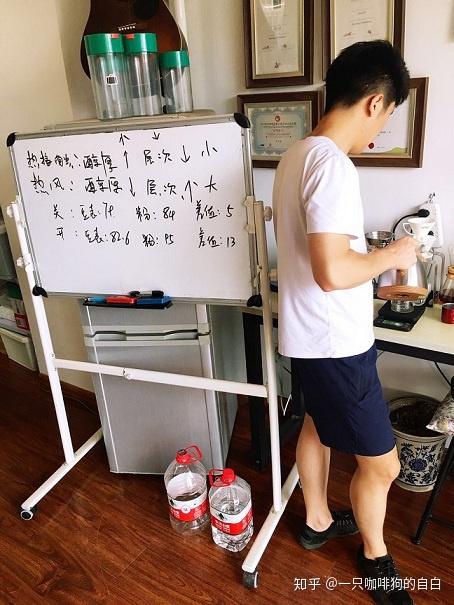 ↑ ↓
醇厚 ↑ 层次 ↓ 小
热风: 醇厚 ↓ 层次 ↑ 大
关: 豆表: 79 粉: 84 差值: 5
开: 豆表: 82.6 粉: 95 差值: 13
知乎 @一只咖啡狗的自白